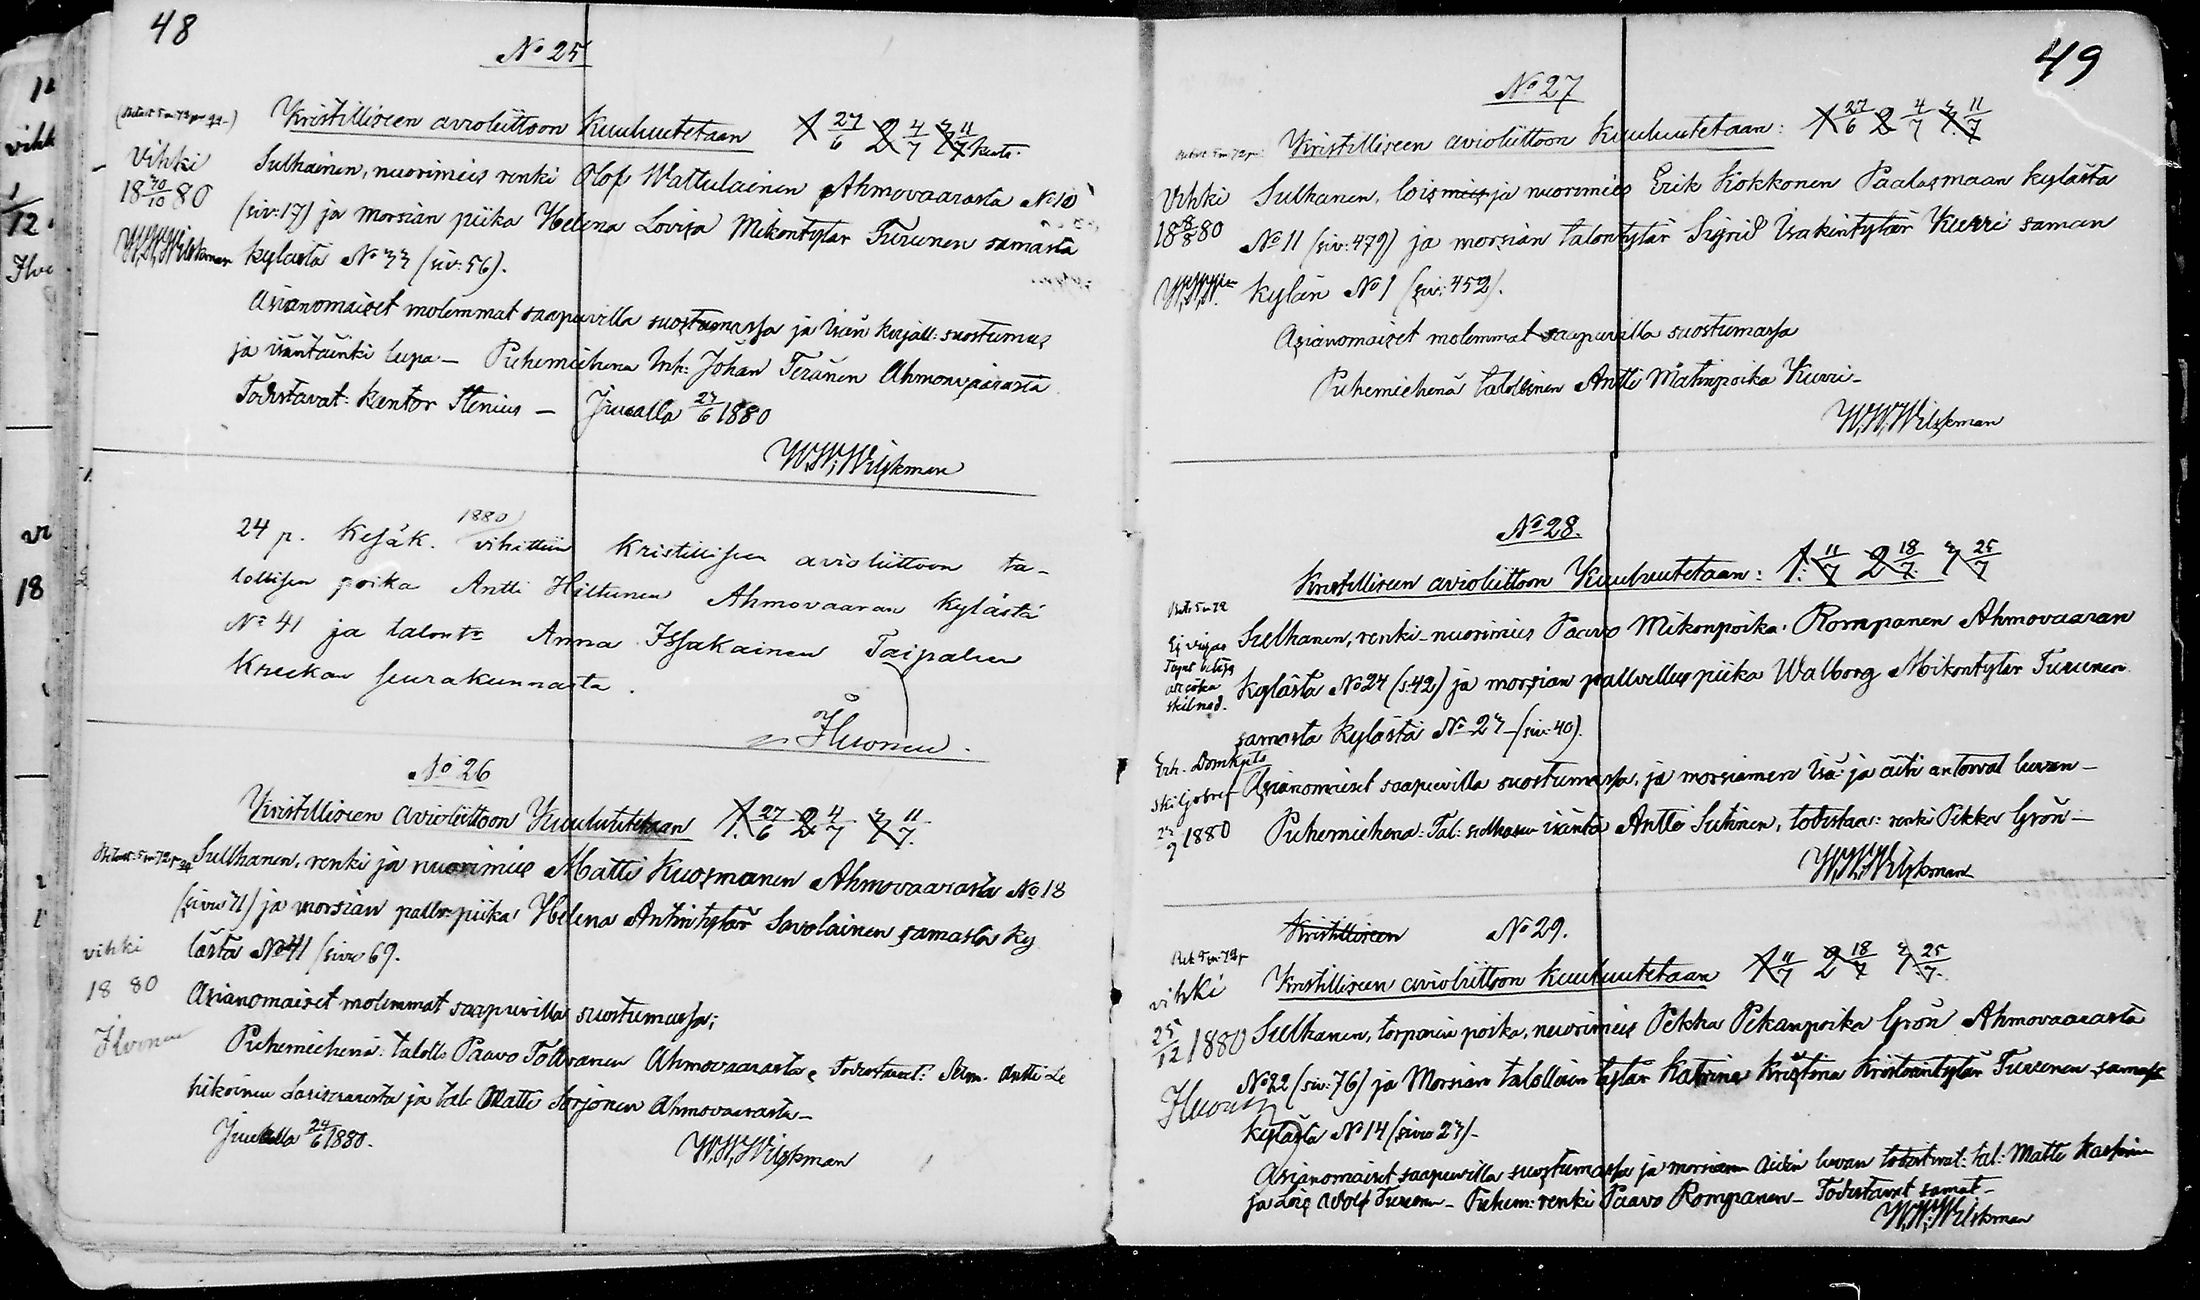 48
No 25
Kristilliseen avioliittoon Kuulutetaan 1 27/6 2 4/7 3 11/7
Vihki
18 30/10 80
W.W.Wilskman
Sulhainen, nuorimies renki Olof Wattulainen Ahmovaarasta No 10
(siv: 17) ja morsian piika Helena Lovisa Mikontytär Turunen samasta
kylästä No 33 (siv: 56).
Asianomaiset molemmat saapuvilla suostumassa ja isän kirjall: suostumus
ja isäntäinki lupa – Puhemiehenä Johan Teränen Ahmovaarasta
Todistavat: Kantor Stenius – Juualla 27/6 1880
W.W.Wilskman
24 p. Kesäk. 1880 vihittiin Kristilliseen avioliittoon ta-
lollisen poika Antti Hiltunen Ahmovaaran kylästä
No 41 ja talont: Anna Issakainen Taipaleen
Kreekan seurakunnasta.
Ihvonen.
No 26
Kristilliseen avioliittoon Kuulutetaan 1. 27/6 2 4/7 3 11/7.
Sulhanen, renki ja nuorimies Matti Kuosmanen Ahmovaarasta No 18
(sivu 71) ja morsian palv: piika Helena Antintytär Savolainen samasta ky
lästä No 41 (sivu 69.
vihki
18 80
Ihvonen
Asianomaiset molemmat saapuvilla suostumassa;
Puhemiehenä: talolls Paavo Tolvanen Ahmovaarasta, Todistavat: Antti Le
ja tal: Matti Sorjonen Ahmovaarasta –
Juualla 24/6 1880.
W.W.Wilskman
49
No 27
Kristilliseen avioliittoon Kuulutetaan: 1 27/6 2 4/7 3 11/7
Vihki
18 8/8 80
Sulhanen, loismies ja nuorimies Erik Kokkonen Paalasmaan kylästä
No 11 (siv: 479) ja morsian talontytär Sigrid Isakintytär Kurri saman
kylän No 1 (siv: 452).
Asianomaiset molemmat saapuvilla suostumassa
Puhemiehenä talollinen Antti Matinpoika Kurri –
W.W.Wilskman
No 28.
Kristilliseen avioliittoon Kuulutetaan: 1. 11/7 2 18/7. 3 25/7
Sulhanen, renki – nuorimies Paavo Mikonpoika Rompanen Ahmovaaran
kylästä No 24 (s: 42) ja morsian palvellus piika Walborg Mikontytär Turunen
samasta kylästä No 23 (siv: 40).
Ej vigas
skilnad.
Erh. Domkpts
skiljobref
1880
Asianomaiset saapuvilla suostumassa, ja morsiamen Isä: ja äiti antovat luvan –
Puhemiehenä: Tal: sulhasen isäntä Antti Sutinen, todistaa: renki Pekka Grön –
W.W.Wilskman
Kristilliseen No 29.
Kristilliseen avioliittoon Kuulutetaan 1 11/7 2 18/7 3 25/7.
vihki
25/12 1880
Ihvonen
Sulhanen, torparin poika, nuorimies Pekka Pekanpoika Grön Ahmovaarasta
No 22 (siv: 76) ja Morsian talollisen tytär Katrina Kristina Kristerintytär Turunen samasta
kylästä No 14 (sivu 23) –
Asianomaiset saapuvilla suostumassa ja morsiamen äidin luvan todistivat: tal: Matti
ja Lois Adolf Turunen – Puhem: renki Paavo Rompanen – Todistavat samat –
W.W.Wilskman